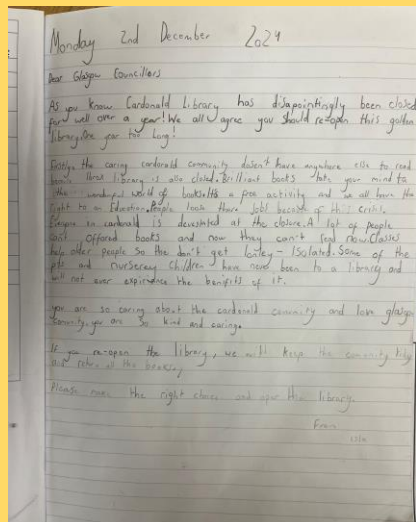 Monday 2nd December 2024
Dear Glasgow Councillors
As you know Cardonald Library has disapointingly been closed
for well over a year! We all agree you should re-open this
library. One year too long!
the caring cardonald community doesn't have anywhere else to read
library is also closed. Brilliant books your mind to
the wonderful world of books. It's a free activity and we all have the
right to an Education. People there jobs because of this crisis.
Everyone in cardonald is devastated at the closure. A lot of people
can't books and now they can't read now. Classes
help other people so the don't get - Isolated. Some of the
and Children have never been to a library and
will not ever the benifits of it.
you are so caring about the cardonald and love glasgow
you are so kind and caring.
If you re-open the library, we will keep the tidy
and all the
Please the right choice and open this library.
From